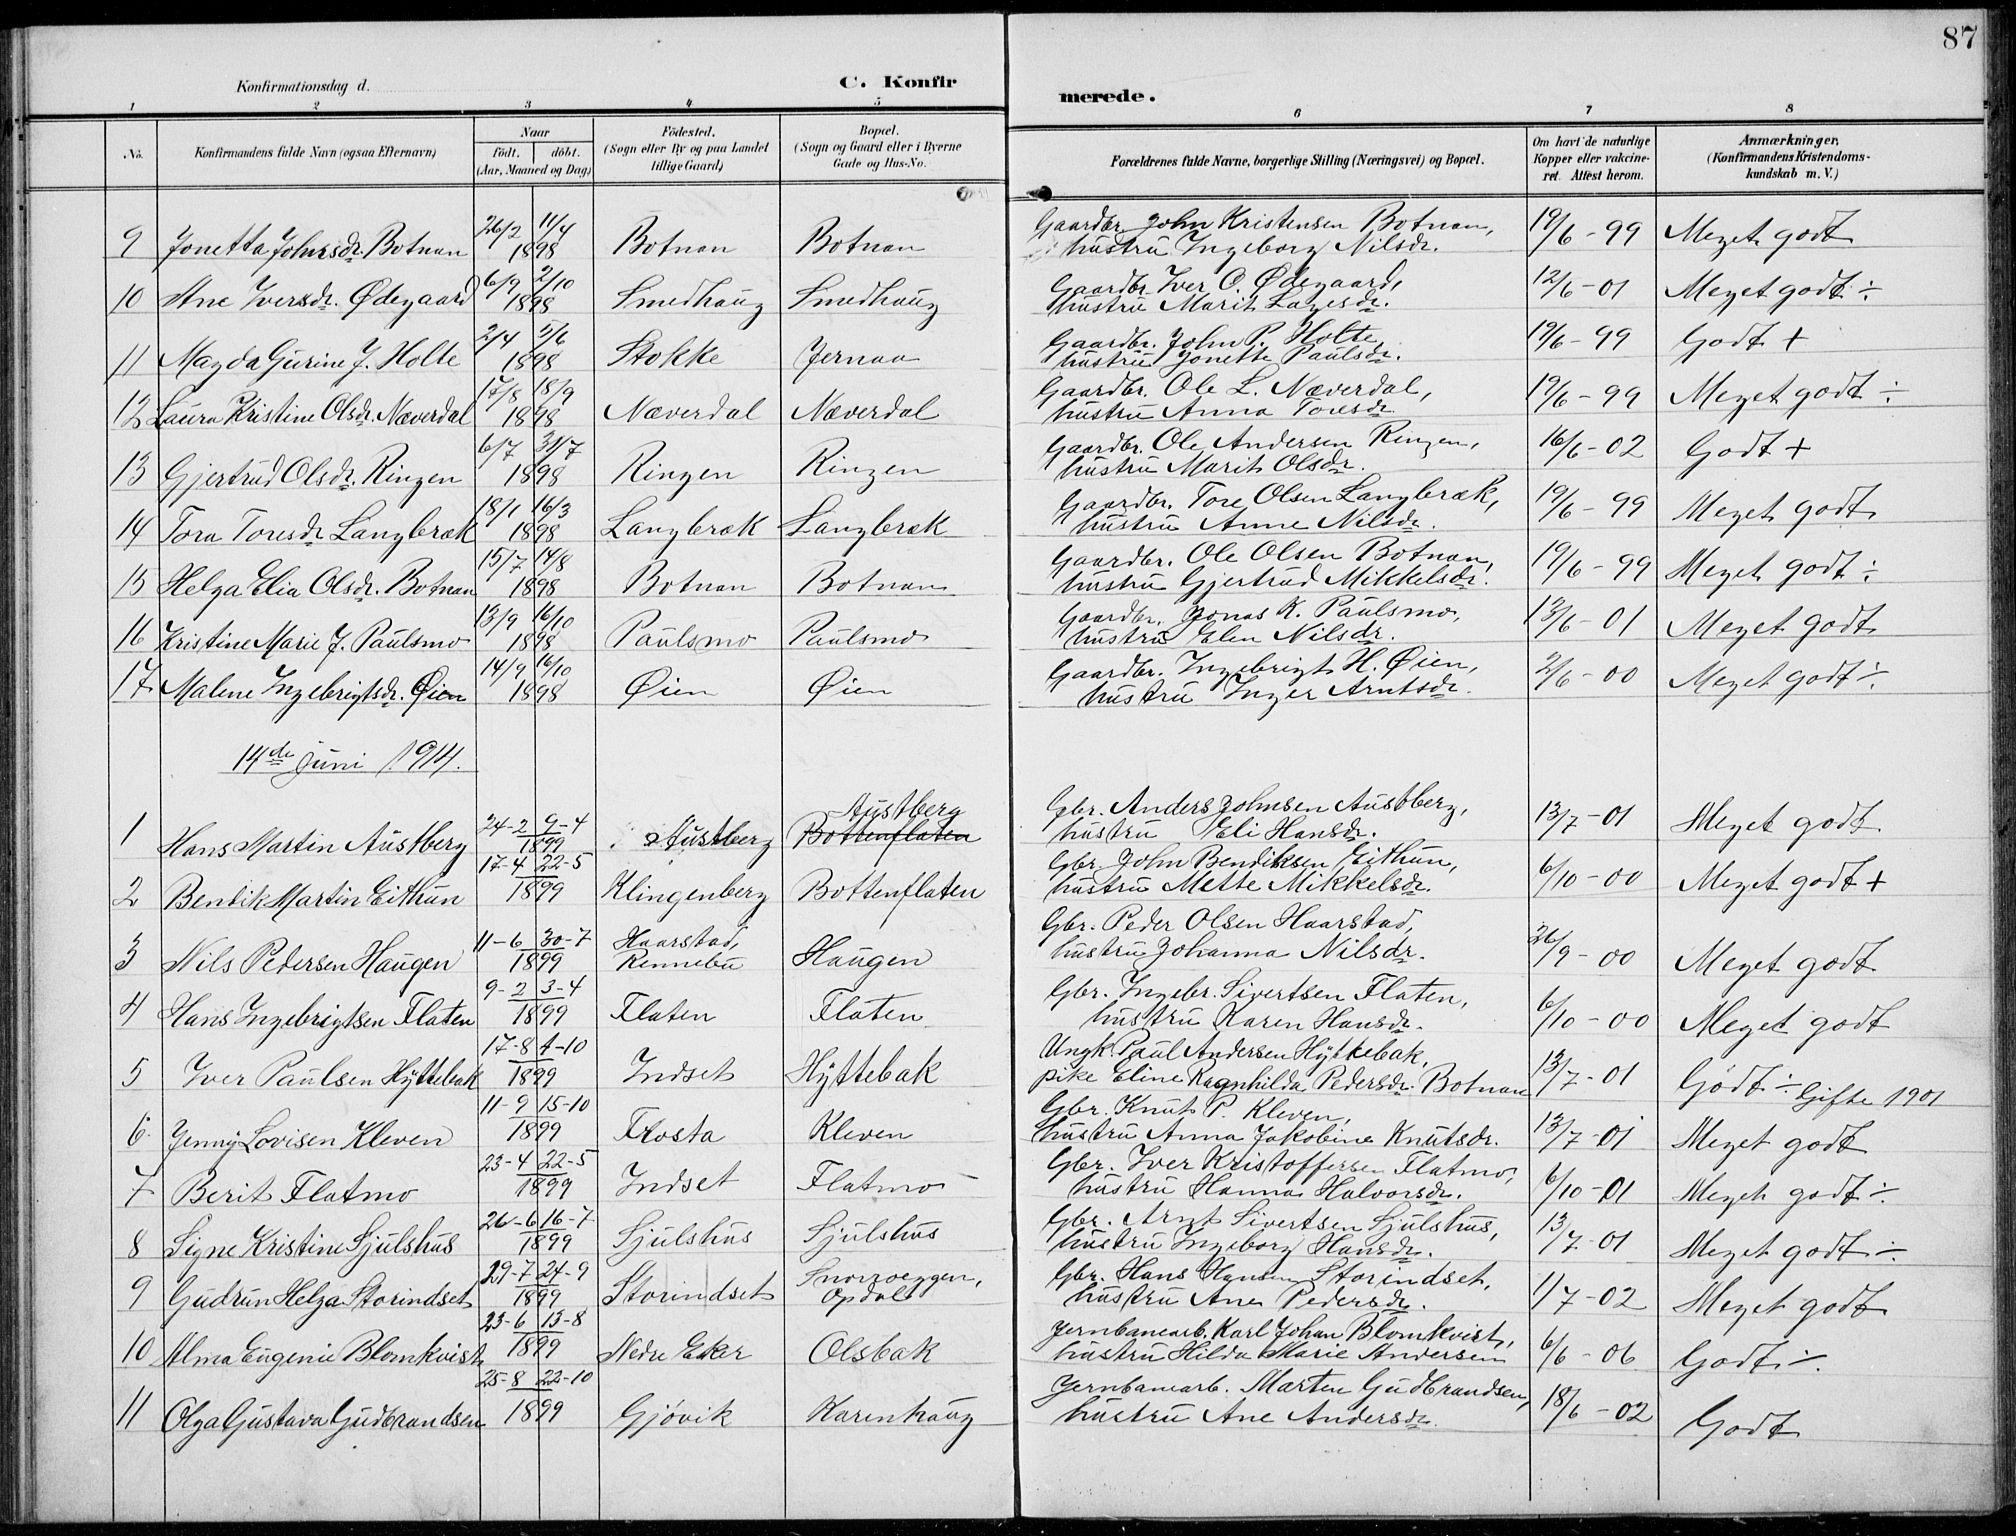 87
Konfirmationsdag d.
C. Konfir
merede.
1 2 3 4 5 6 7 8
No. Konfirmandens fulde Navn (ogsaa Efternavn) Naar födt. döbt. (Aar, Maaned og Dag) Födested. (Sogn eller By og paa Landet tillige Gaard) Bopæl. (Sogn og Gaard eller i Byerne Gade og Hus-No. Forældrenes fulde Navne, borgerlige Stilling (Næringsvei) og Bopæl. Om havt de naturlige Kopper eller vakcineret. Attest herom. Anmærkninger, (Konfirmandens Kristendomskundskab m. V.)
9 Jonetta Johnsdr. Botnan 26/2 11/4 1898 Botnan Botnan Gaardbr. John Kristensen Botnan, hustru Ingeborg Nilsdr. 19/6-99 Meget godt
10 Ane Iversdr. Ødegaard 6/9 2/10 1898 Smedhaug Smedhaug Gaardbr. Iver O. Ødegaard, hustru Marit Lagesdr. 12/6-01 Meget godt ÷
11 Magda Gurine J. Holte 2/4 5/6 1898 Stokke Jernaa Gaardbr. John P. Holte, hustru Jonette Paulsdr. 19/6-99 Godt +
12 Laura Kristine Olsdr. Næverdal 17/8 18/9 1898 Næverdal Næverdal Gaardbr. Ole L. Næverdal, hustru Anna Toresdr 19/6-99 Meget godt ÷
13 Gjertrud Olsdr. Ringen 6/7 31/7 1898 Ringen Ringen Gaardbr. Ole Andersen Ringen, hustru Marit Olsdr. 16/6-02 Godt +
14 Tora Toresdr Langbræk 18/1 16/3 1898 Langbræk Langbræk Gaardbr. Tore Olsen Langbræk, hustru Anne Nilsdr. 19/6-99 Meget godt
15 Helga Elia Olsdr. Botnan 15/7 14/8 1898 Botnan Botnan Gaardbr. Ole Olsen Botnan, hustru Gjertrud Mikkelsdr. 19/6-99 Meget godt ÷
16 Kristine Marie J. Paulsmo 13/9 16/10 1898 Paulsmo Paulsmo Gaardbr. Jonas K. Paulsmo, hustru Elen Nilsdr. 13/6-01 Meget godt
17 Malene Ingebrigtsdr. Øien 14/9 16/10 1898 Øien Øien Gaardbr. Ingebrigt H. Øien, hustru Inger Arntsdr. 2/6-00 Meget godt ÷
14de juni 1914.
1 Hans Martin Austberg 24-2 9-4 1899 Austberg Austberg Bottenflaten Gbr. Anders Johnsen Austberg, hustru Eli Hansdr. 13/7-01 Meget godt
2 Bendik Martin Eithun 17-4 22-5 1899 Klingenberg Bottenflaten Gbr. John Bendiksen Eithun, hustru Mette Mikkelsdr. 6/10-00 Meget godt +
3 Nils Pedersen Haugen 11-6 30-7 1899 Haarstad, Rennebu Haugen Gbr. Peder Olsen Haarstad, hustru Johanna Nilsdr. 26/9-00 Meget godt
4 Hans Ingebrigtsen Flaten 9-2 3-4 1899 Flaten Flaten Gbr. Ingebr. Sivertsen Flaten, hustru Karen Hansdr. 6/10-00 Meget godt
5 Iver Paulsen Hyttebak 17-8 1-10 1899 Indset Hyttebak Ungk. Paul Andersen Hyttebak, pike Eline Ragnhilda Pedersdr. Botnan 13/7-01 Godt ÷ Gifte 1901
6 Jenny Lovisen Kleven 11-9 15-10 1899 Frosta Kleven Gbr. Knut P. Kleven, hustru Anna Jakobine Knutsdr. 13/7-01 Meget godt
7 Berit Flatmo 23-4 22-5 1899 Indset Flatmo Gbr. Iver Kristoffersen Flatmo, hustru Hanna Halvorsdr. 6/10-01 Meget godt ÷
8 Signe Kristine Sjulshus 26-6 16-7 1899 Sjulshus Sjulshus Gbr. Arnt Sivertsen Sjulshus, hustru Ingeborg Hansdr. 13/7-01 Meget godt ÷
9 Gudrun Helga Storindset 29-7 24-9 1899 Storindset Opdal Gbr. Hans Hansen Storindset, hustru Ane Pedersdr. 1/7-02 Meget godt
10 Alma Eugenie Blomkvist 23-6 13-8 1899 Nedre Eker Olsbak Jernbanearb. Karl Johan Blomkvist, hustru Hilda Marie Andersen 6/6-06 Godt ÷
11 Olga Gustava Gudbrandsen 25-8 22-10 1899 Gjøvik Karenhaug Jernbanearb. Marten Gudbrandsen, hustru Ane Andersdr. 18/6-02 Godt